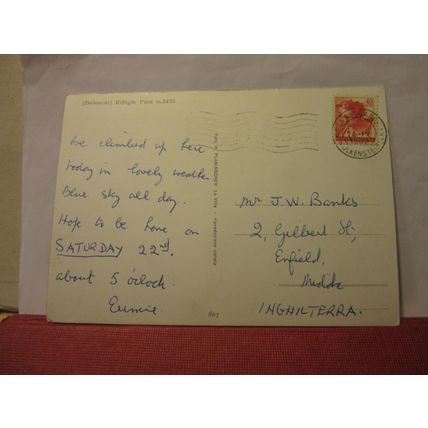 (Dolomiti) Rifugio Puez m.2475
We climbed up here
today in lovely weather
Blue sky all day.
Hope to be home on
SATURDAY 22nd.
about 5 o'clock.
Mr J. W. Banks
2, Gilbert St,
Enfield,
Middx
INGHILTERRA.
863